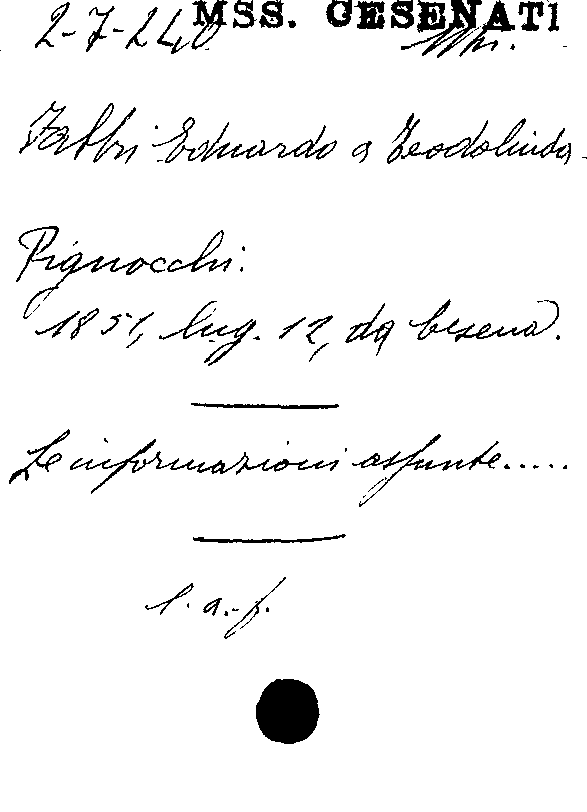 MSS. CESENATI
2-7-240
Fabbri Eduardo a Teodolinda
Pignocchi.
1851, lug. 12, da Cesena.
Le informazioni assunte.....
l. a. f.